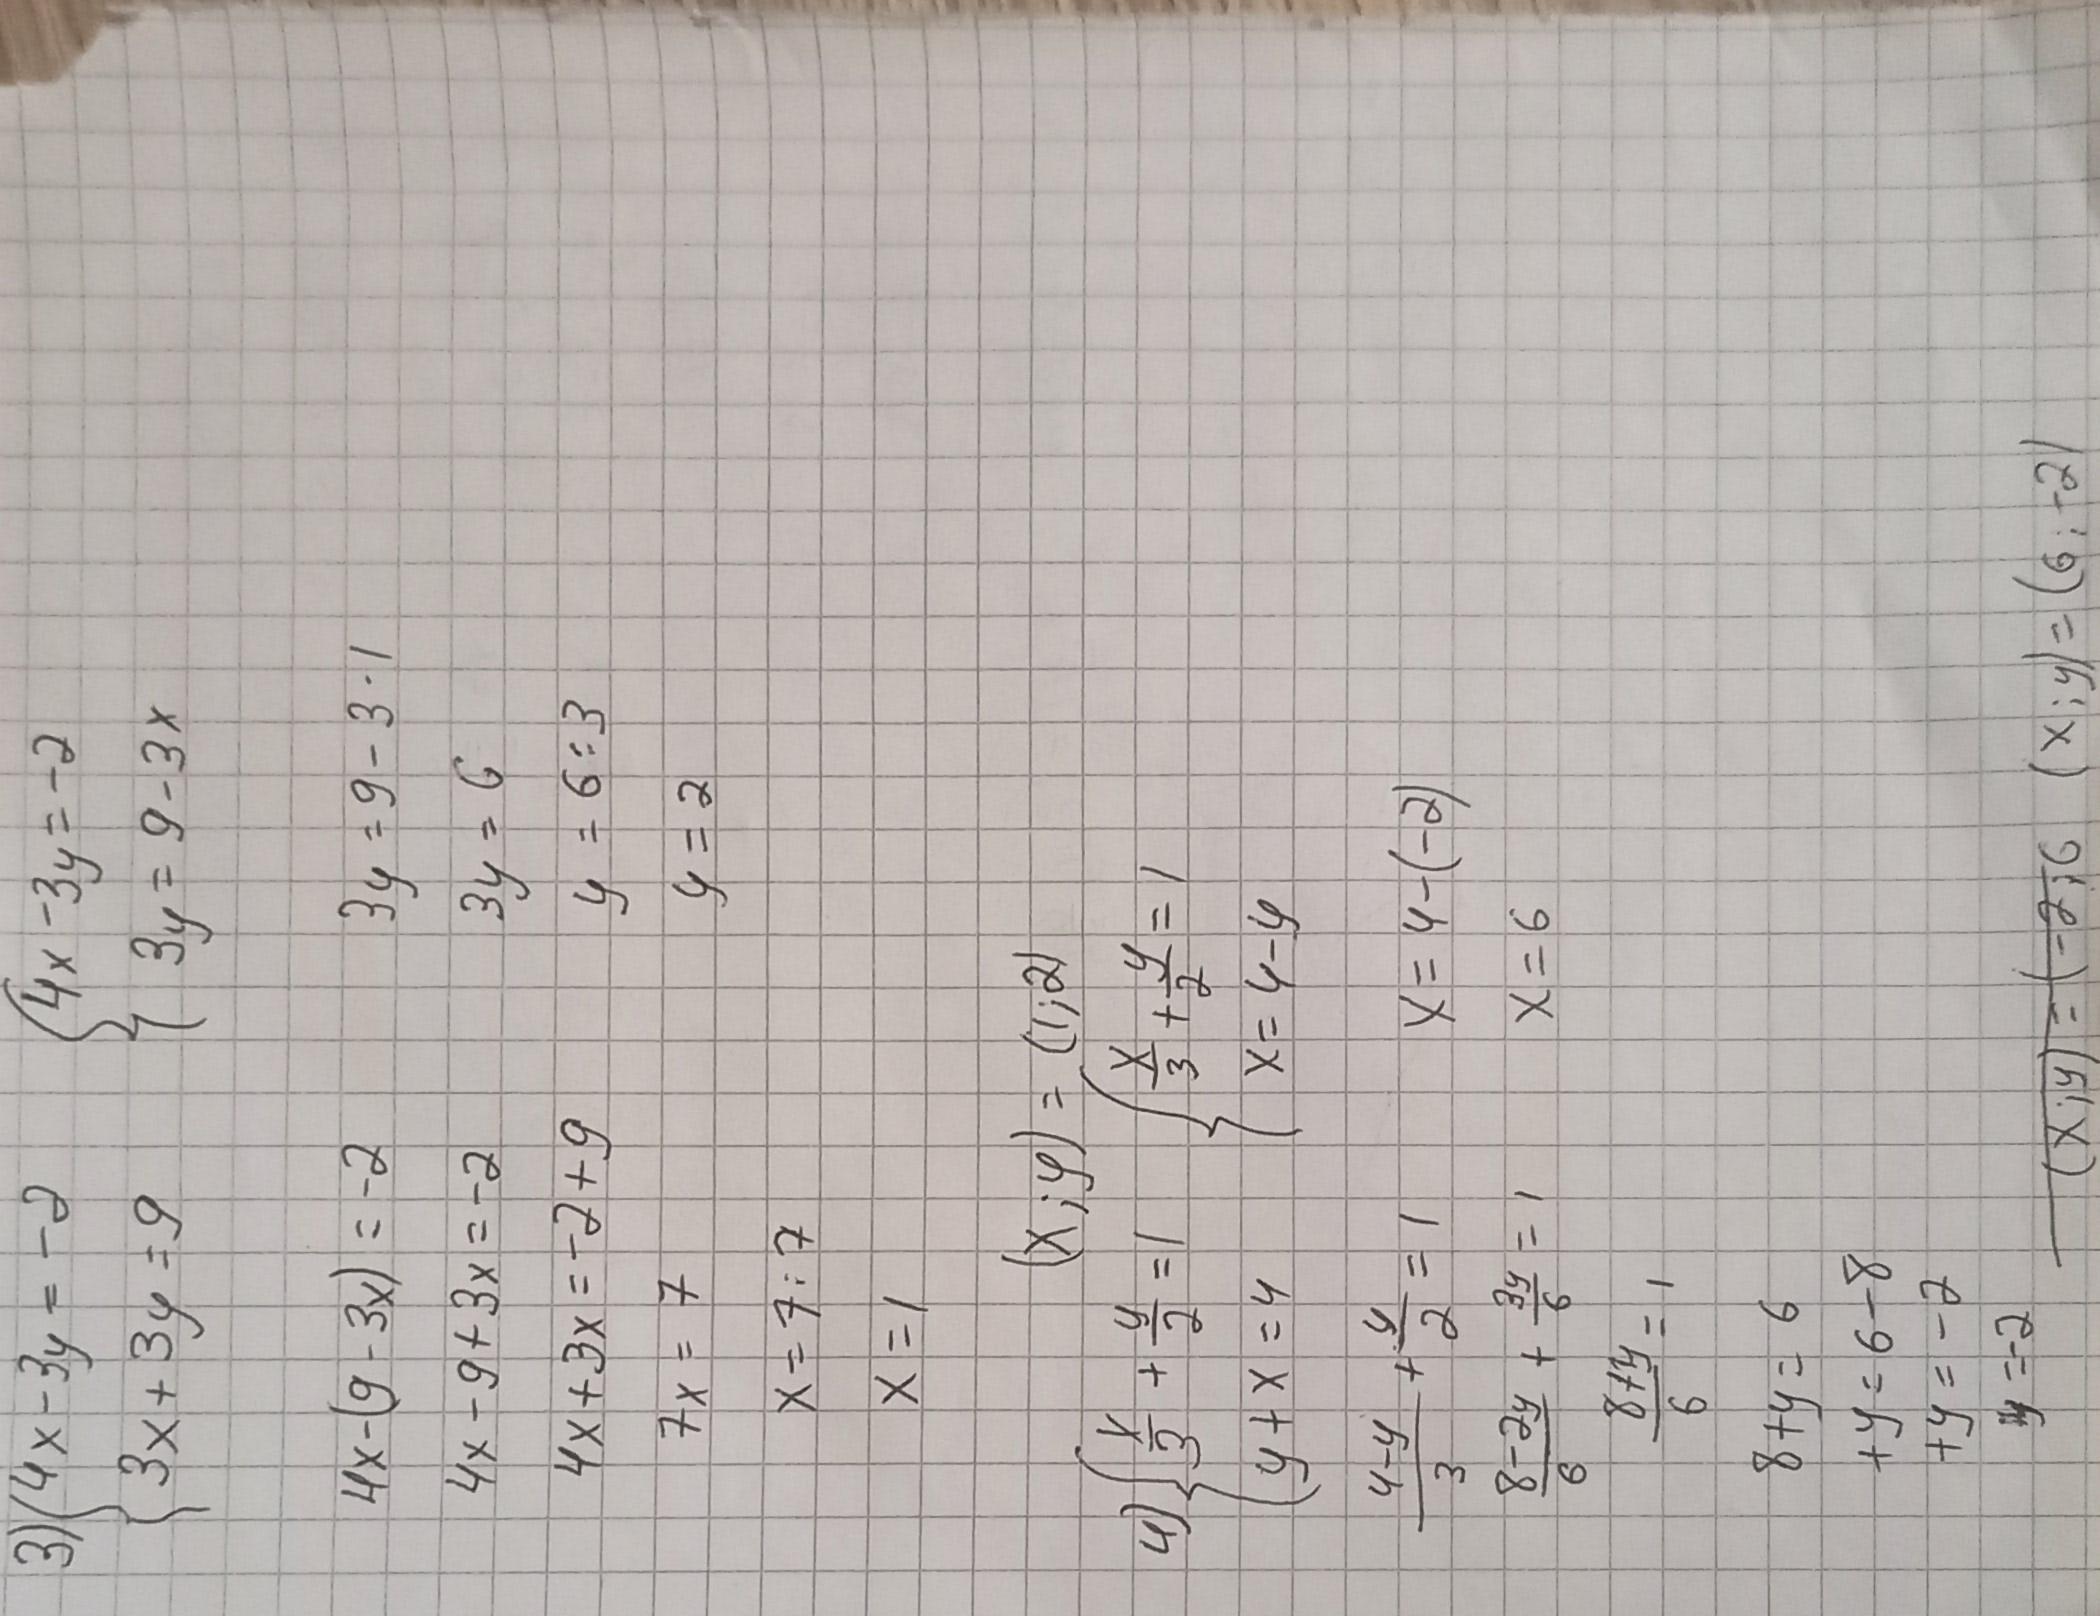 3) { 4x-3y=-2    { 4x-3y=-2
{ 3x+3y=9    { 3y=9-3x
4x-(9-3x)=-2    3y=9-3·1
4x-9+3x=-2    3y=6
4x+3x=-2+9    y=6:3
7x=7    y=2
x=7:7
x=1
(x;y)=(1;2)
4) { x/3 + y/2 = 1    { x/3 + y/2 = 1
{ y+x=4    x=4-y
4-y/3 + y/2 = 1    x=4-(-2)
8-2y/6 + 3y/6 = 1    x=6
8+y/6 = 1
8+y=6
+y=6-8
+y=-2
y=-2
(x;y)=(-2;6    (x;y)=(6;-2)